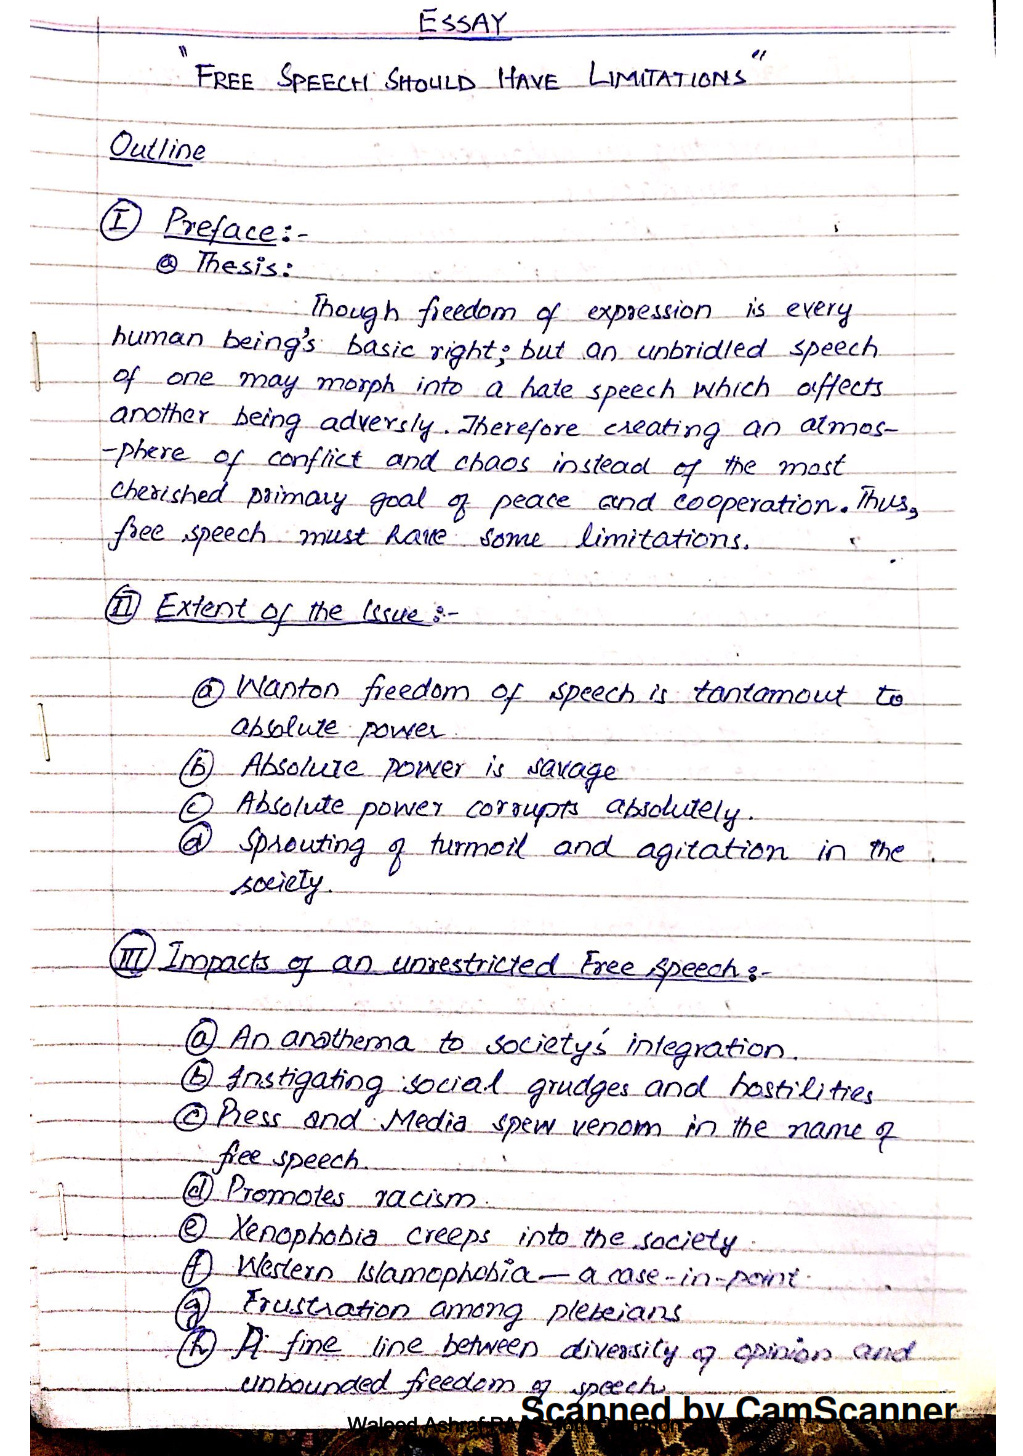 ESSAY
"FREE SPEECH SHOULD HAVE LIMITATIONS"
Outline
(I) Preface:-
(a) Thesis:
Though freedom of expression is every
human being's basic right; but an unbridled speech
of one may morph into a hate speech which affects
another being adversly. Therefore creating an atmos-
-phere of conflict and chaos instead of the most
cherished primary goal of peace and cooperation. Thus,
free speech must have some limitations.
(II) Extent of the Issue:-
(a) Wanton freedom of speech is tantamout to
absolute power
(b) Absolute power is savage
(c) Absolute power corrupts absolutely.
(d) Sprouting of turmoil and agitation in the
society.
(III) Impacts of an unrestricted Free speech:-
(a) An anathema to society's integration.
(b) Instigating social grudges and hostilities
(c) Press and Media spew venom in the name of
free speech.
(d) Promotes racism.
(e) Xenophobia creeps into the society.
(f) Western Islamophobia — a case-in-point.
(g) Frustration among plebeians
(h) A fine line between diversity of opinion and
unbounded freedom of speech
Scanned by CamScanner
Waleed Ashraf